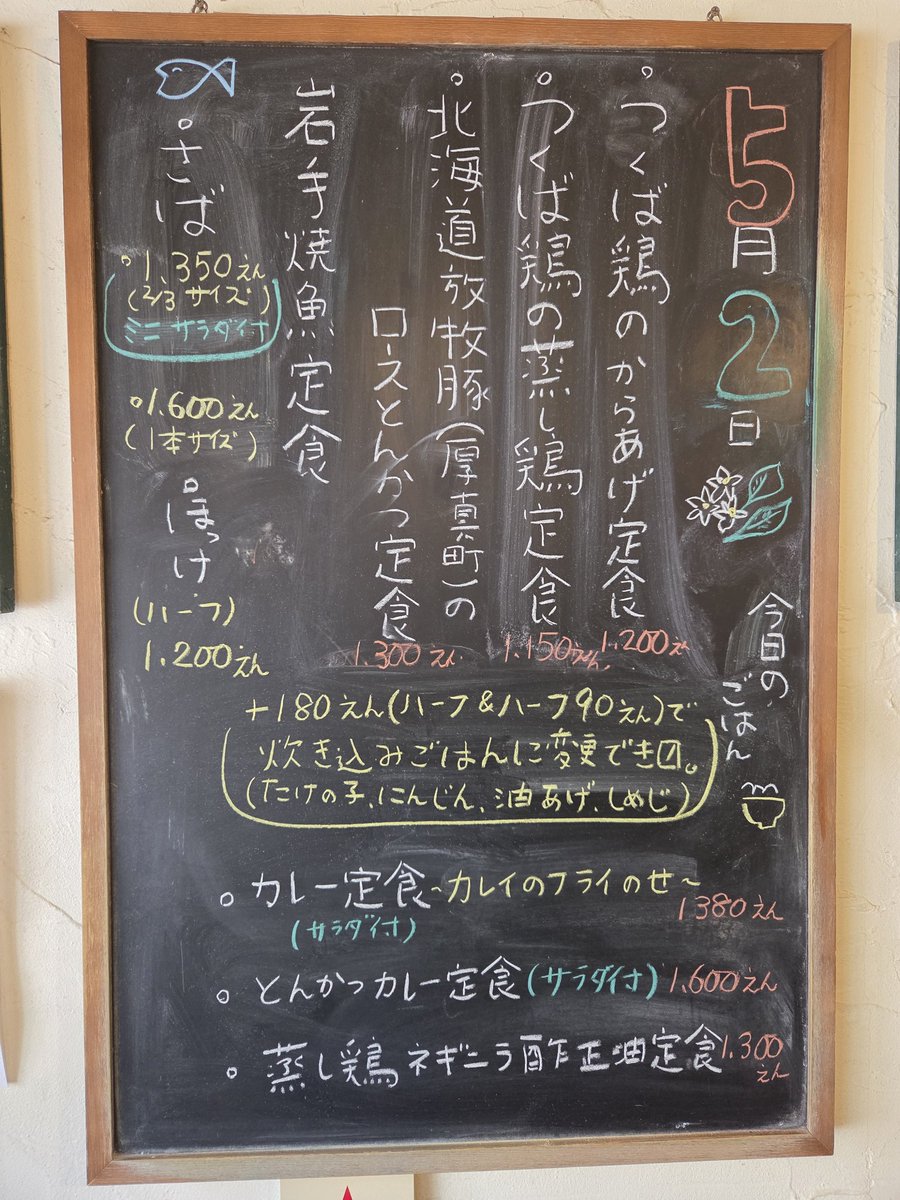 5月2日
今日の、ごはん
つくば鶏のからあげ定食
1.200えん
つくば鶏の蒸し鶏定食
1.150えん
北海道放牧豚(厚真町)の
ロースとんかつ定食
1.300えん
岩手焼魚定食
さば
1.350えん
(2/3サイズ)
ミニサラダ付
1.600えん
(1本サイズ)
ほっけ
(ハーフ)
1.200えん
+180えん(ハーフ&ハーフ90えん)で
炊き込みごはんに変更でき〼。
(たけの子、にんじん、油あげ、しめじ)
カレー定食~カレイのフライのせ~
1380えん
(サラダ付)
とんかつカレー定食(サラダ付)1.600えん
蒸し鶏ネギニラ酢正油定食1.300えん